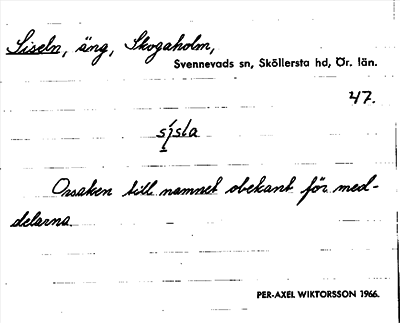 Siseln, äng, Skogaholm,
Svennevads sn, Sköllersta hd, Ör. län.
47.
sísla
Orsaken till namnet obekant för med-
delarna.
PER-AXEL WIKTORSSON 1966.